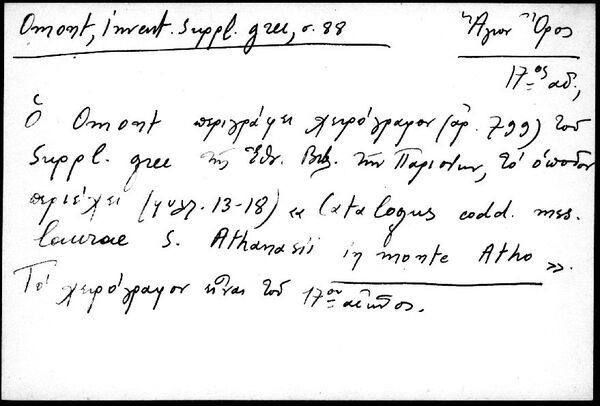 Omont, Invent. Suppl. grec, σ. 88
Ἅγιον Ὄρος
17ος αἰ.,
Ὁ Omont περιγράφει χειρόγραφον (ἀρ. 799) τοῦ
Suppl. grec τῆς Ἐθν. Βιβ. τῶν Παρισίων, τὸ ὁποῖον
περιέχει (φυλλ. 13-18) « Catalogus codd. mss.
Laurae S. Athanasii in monte Atho ».
Τὸ χειρόγραφον εἶναι τοῦ 17ου αἰῶνος.